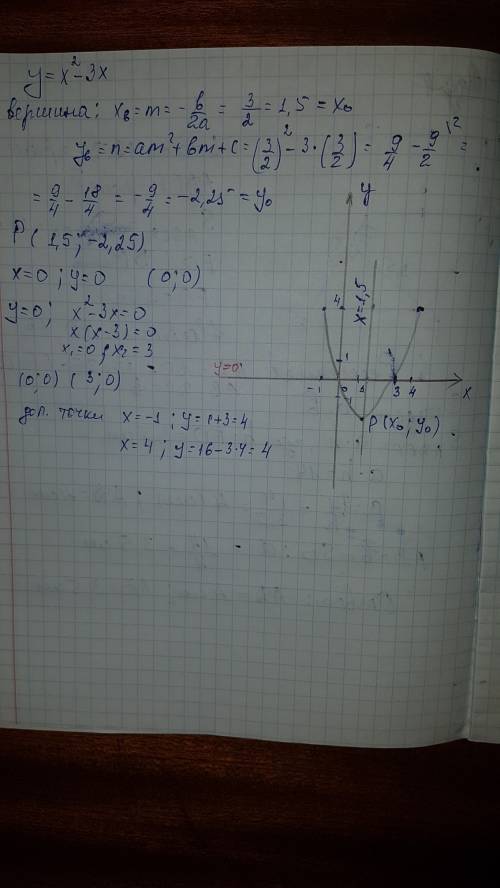 y = x² - 3x
вершина: xв = m = - в/2a = 3/2 = 1,5 = x₀
yв = n = am² + вm + c = (3/2)² - 3·(3/2) = 9/4 - 9/2 \2 =
= 9/4 - 18/4 = - 9/4 = -2,25 = y₀
P( 1,5 ; -2,25)
x=0 ; y=0 (0;0)
y=0; x² - 3x = 0
x(x-3) = 0
x₁=0 ; x₂ = 3
(0;0) (3;0)
доп. точки x = -1 ; y = 1+3 = 4
x = 4 ; y = 16 - 3·4 = 4
y
4
x=1,5
1
y=0
-1 0 1 3 4 x
P(x₀ ; y₀)